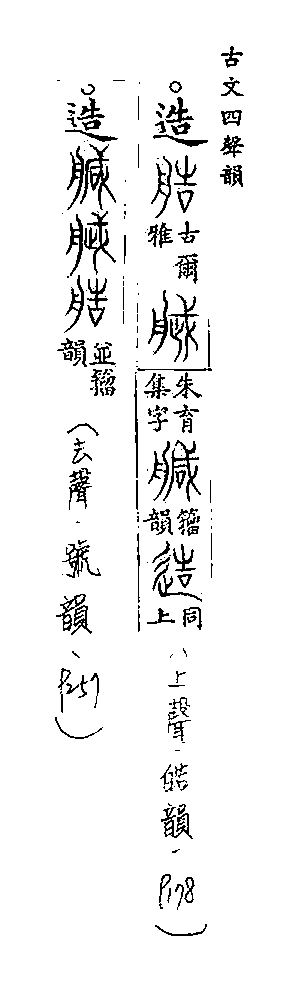 古文四聲韻
。造 古爾雅 朱育集字 籀韻 造 同上 (上聲.皓韻.P178)
。造 並籀韻 (去聲.號韻、P257)